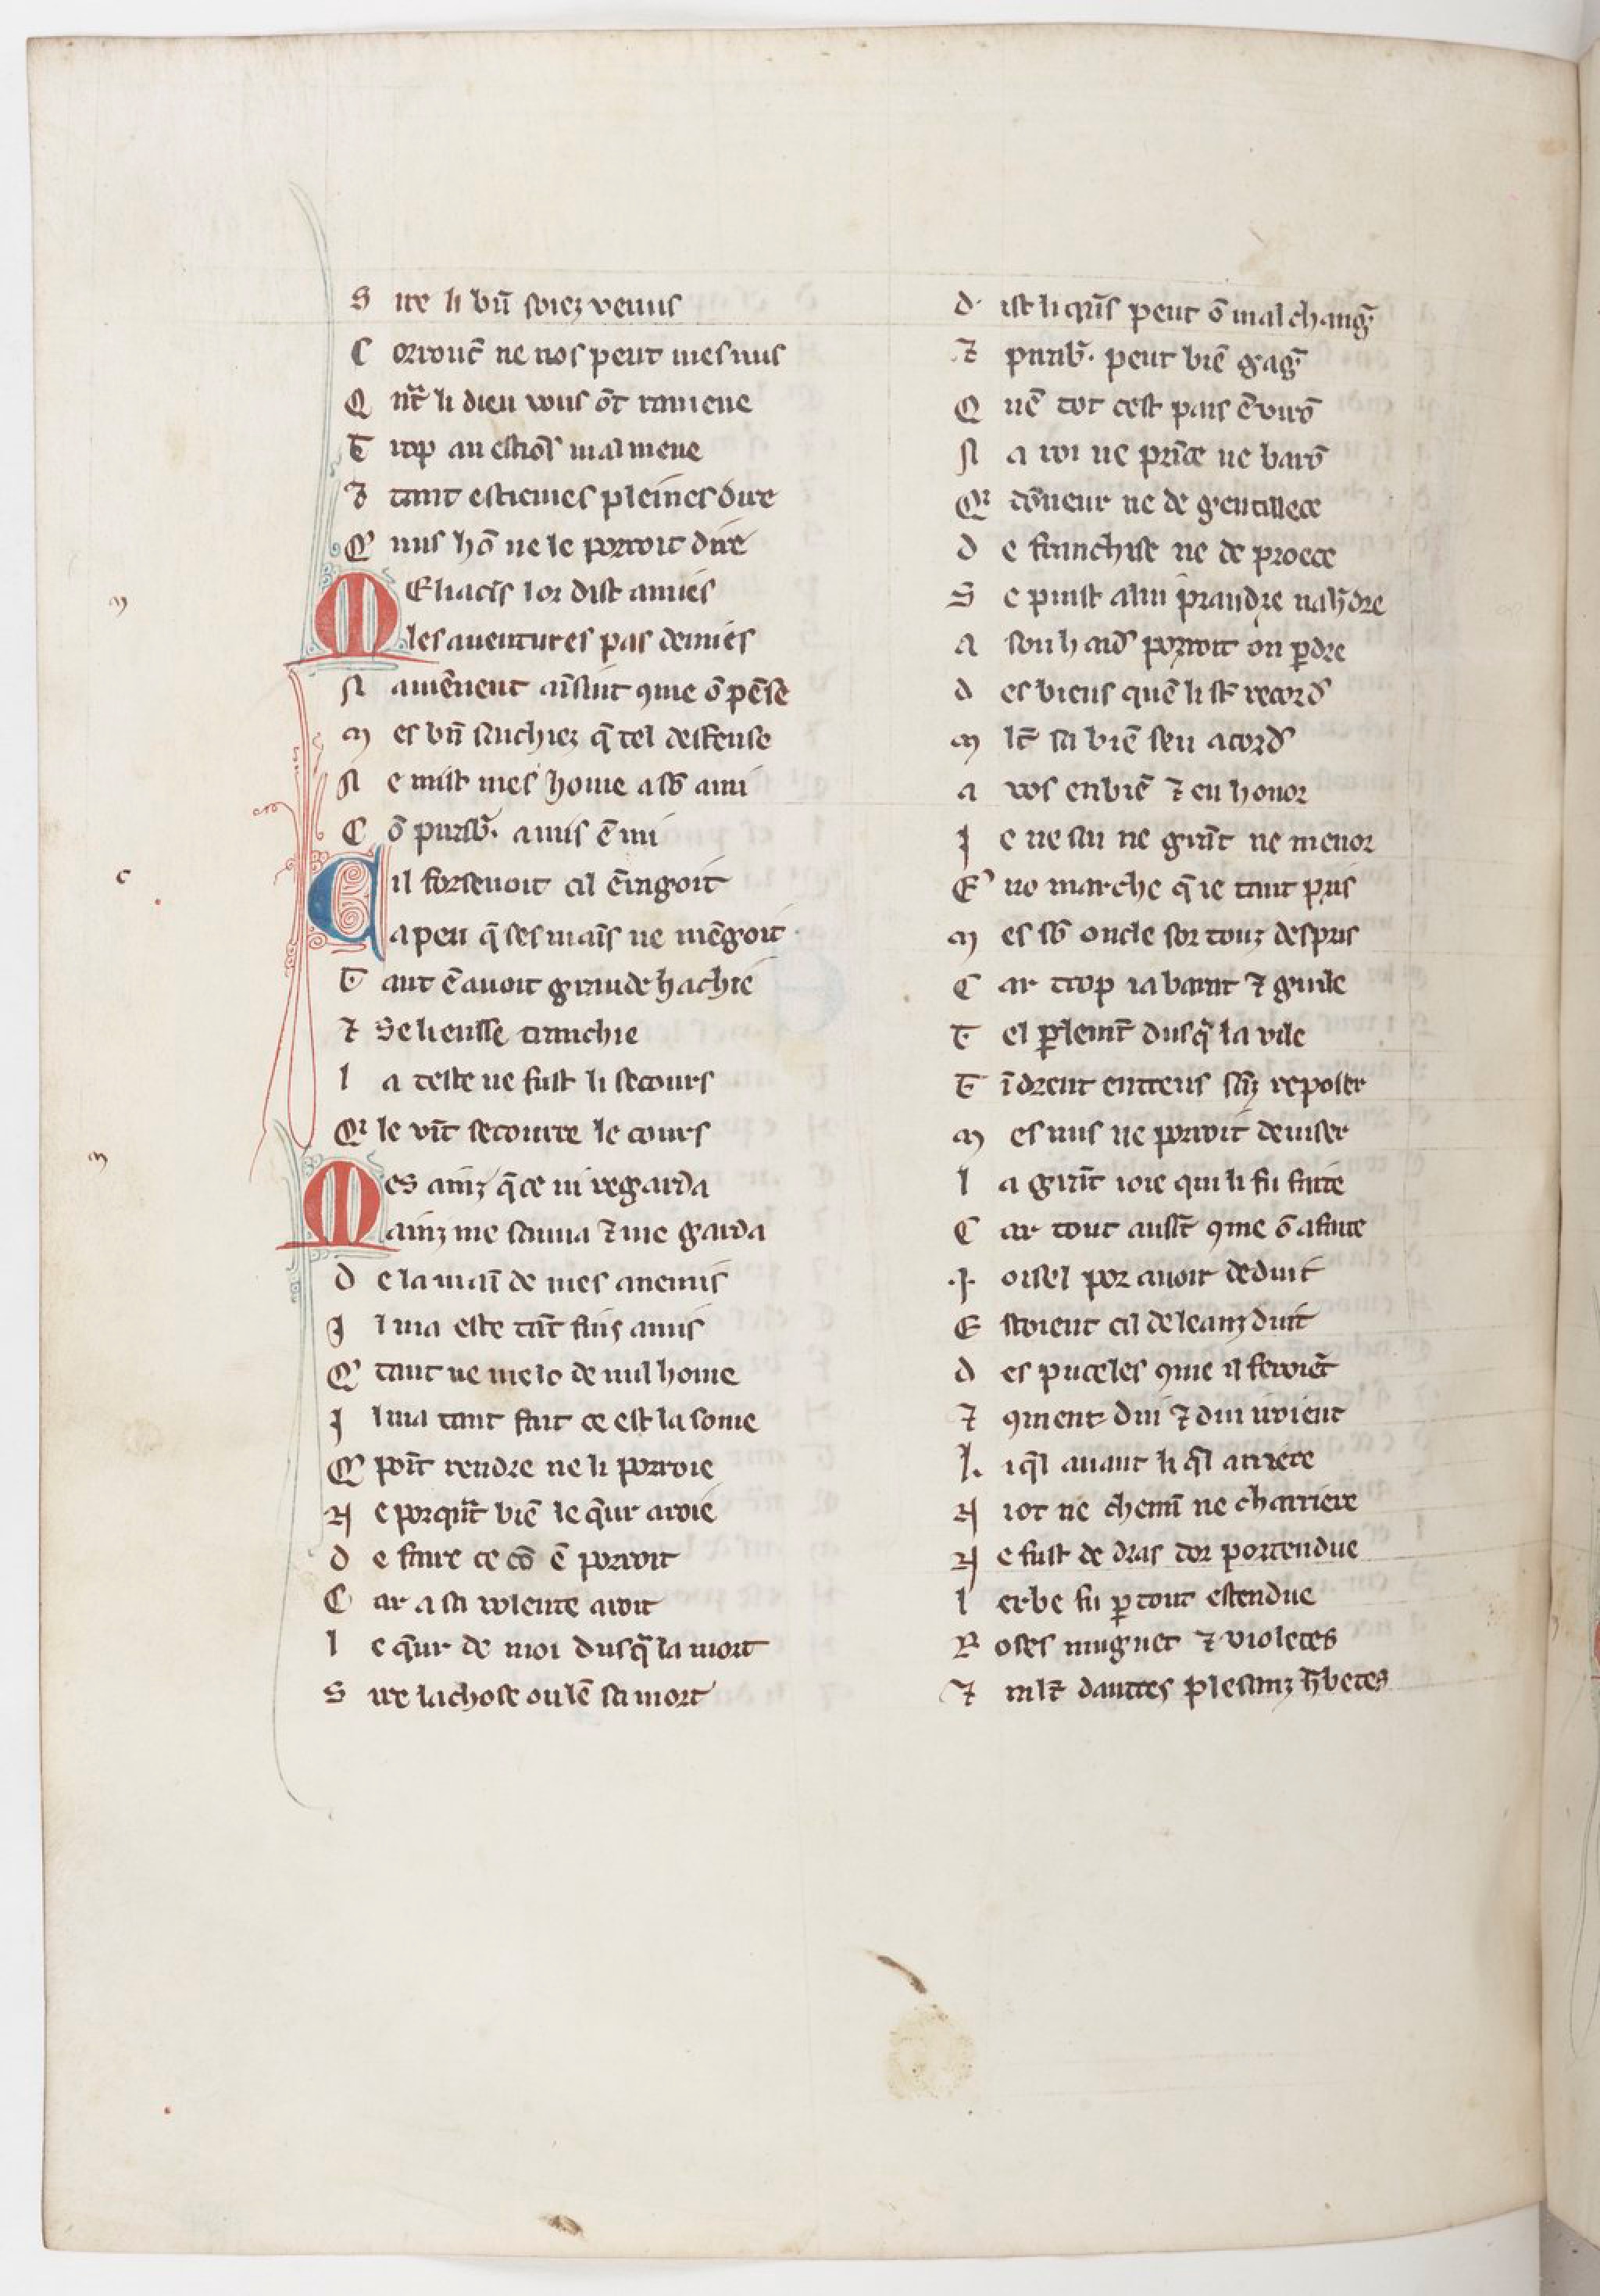 S ire li bñ soiez venus
C orrouc̄ ne nos peut mes nus
Q nt̃ li dieu vous ōt ramene
T rop an estiōs mal mene
⁊ tant estiemes pleines dire
Q' nus hō ne le porroit dire
M Eliacīs lor dist amies
les auentures pas demies
N auiēnent aīsint 9me ō pēse
m es bñ sachiez q̄ tel desfense
N e mist mes home a sō ami
C ō partō. a mis ē mi
C il forsenoit cil ēragoit
a peu q̄ ses maīs ne mēgoit
T ant ē auoit grande hachie
⁊ Se li eusse tranchie
l a teste ne fust li secours
Q' le vīt secourre le cours
M es ainz q̄ ce ni regarda
ainz me sauua ⁊ me garda
D e la maī de mes anemis
J l ma este tāt fins amis
Q' tant ne me lo de nul home
J l ma tant fait ce est la some
Q' poīt rendre ne li porroie
N e porqñt biē le q̄ur aroie
d e faire ce cō ē porroit
C ar a sa volente aroit
l e q̄ur de moi dusq̄ la mort
S ire la chose ou lē sa mort
d ist li q̄ns peut ō mal chang̃
⁊ partō. peut biē gag̃
Q uē tot cest pais ēvirō
N a roi ne prīce ne barō
Q' dōneur ne de gentillece
d e franchise ne de proece
S e puist a lui prandre nahꝰdre
a souhaid porroit on ꝑdre
d es biens quē li st̄ record
m lt̄ sa biē seu acord
a vos en biē ⁊ en honor
J e ne sai ne grāt ne menor
E' no marche q̄ ie tant pris
m es sō oncle sor touz despris
C ar trop ia barat ⁊ guile
T el ꝑlemt̄ dusq̄ la vile
T īdrent entreus sāz reposer
m es nus ne porroit deuiser
l a grāt ioie qui li fu faite
C ar tout aust̄ 9me ō afaite
.J. oisel por auoir deduit
E stoient cil de leanz duit
d es puceles 9me il feroiēt
⁊ 9ment dui ⁊ dui iroient
L. iq̄l auant li q̄l arriere
N iot ne chemī ne charriere
N e fust de dras dor portendue
l erbe fu ꝑ tout estendue
R oses muguet ⁊ violetes
⁊ mlt̄ dautres plesanz h̄betes
m
c
m